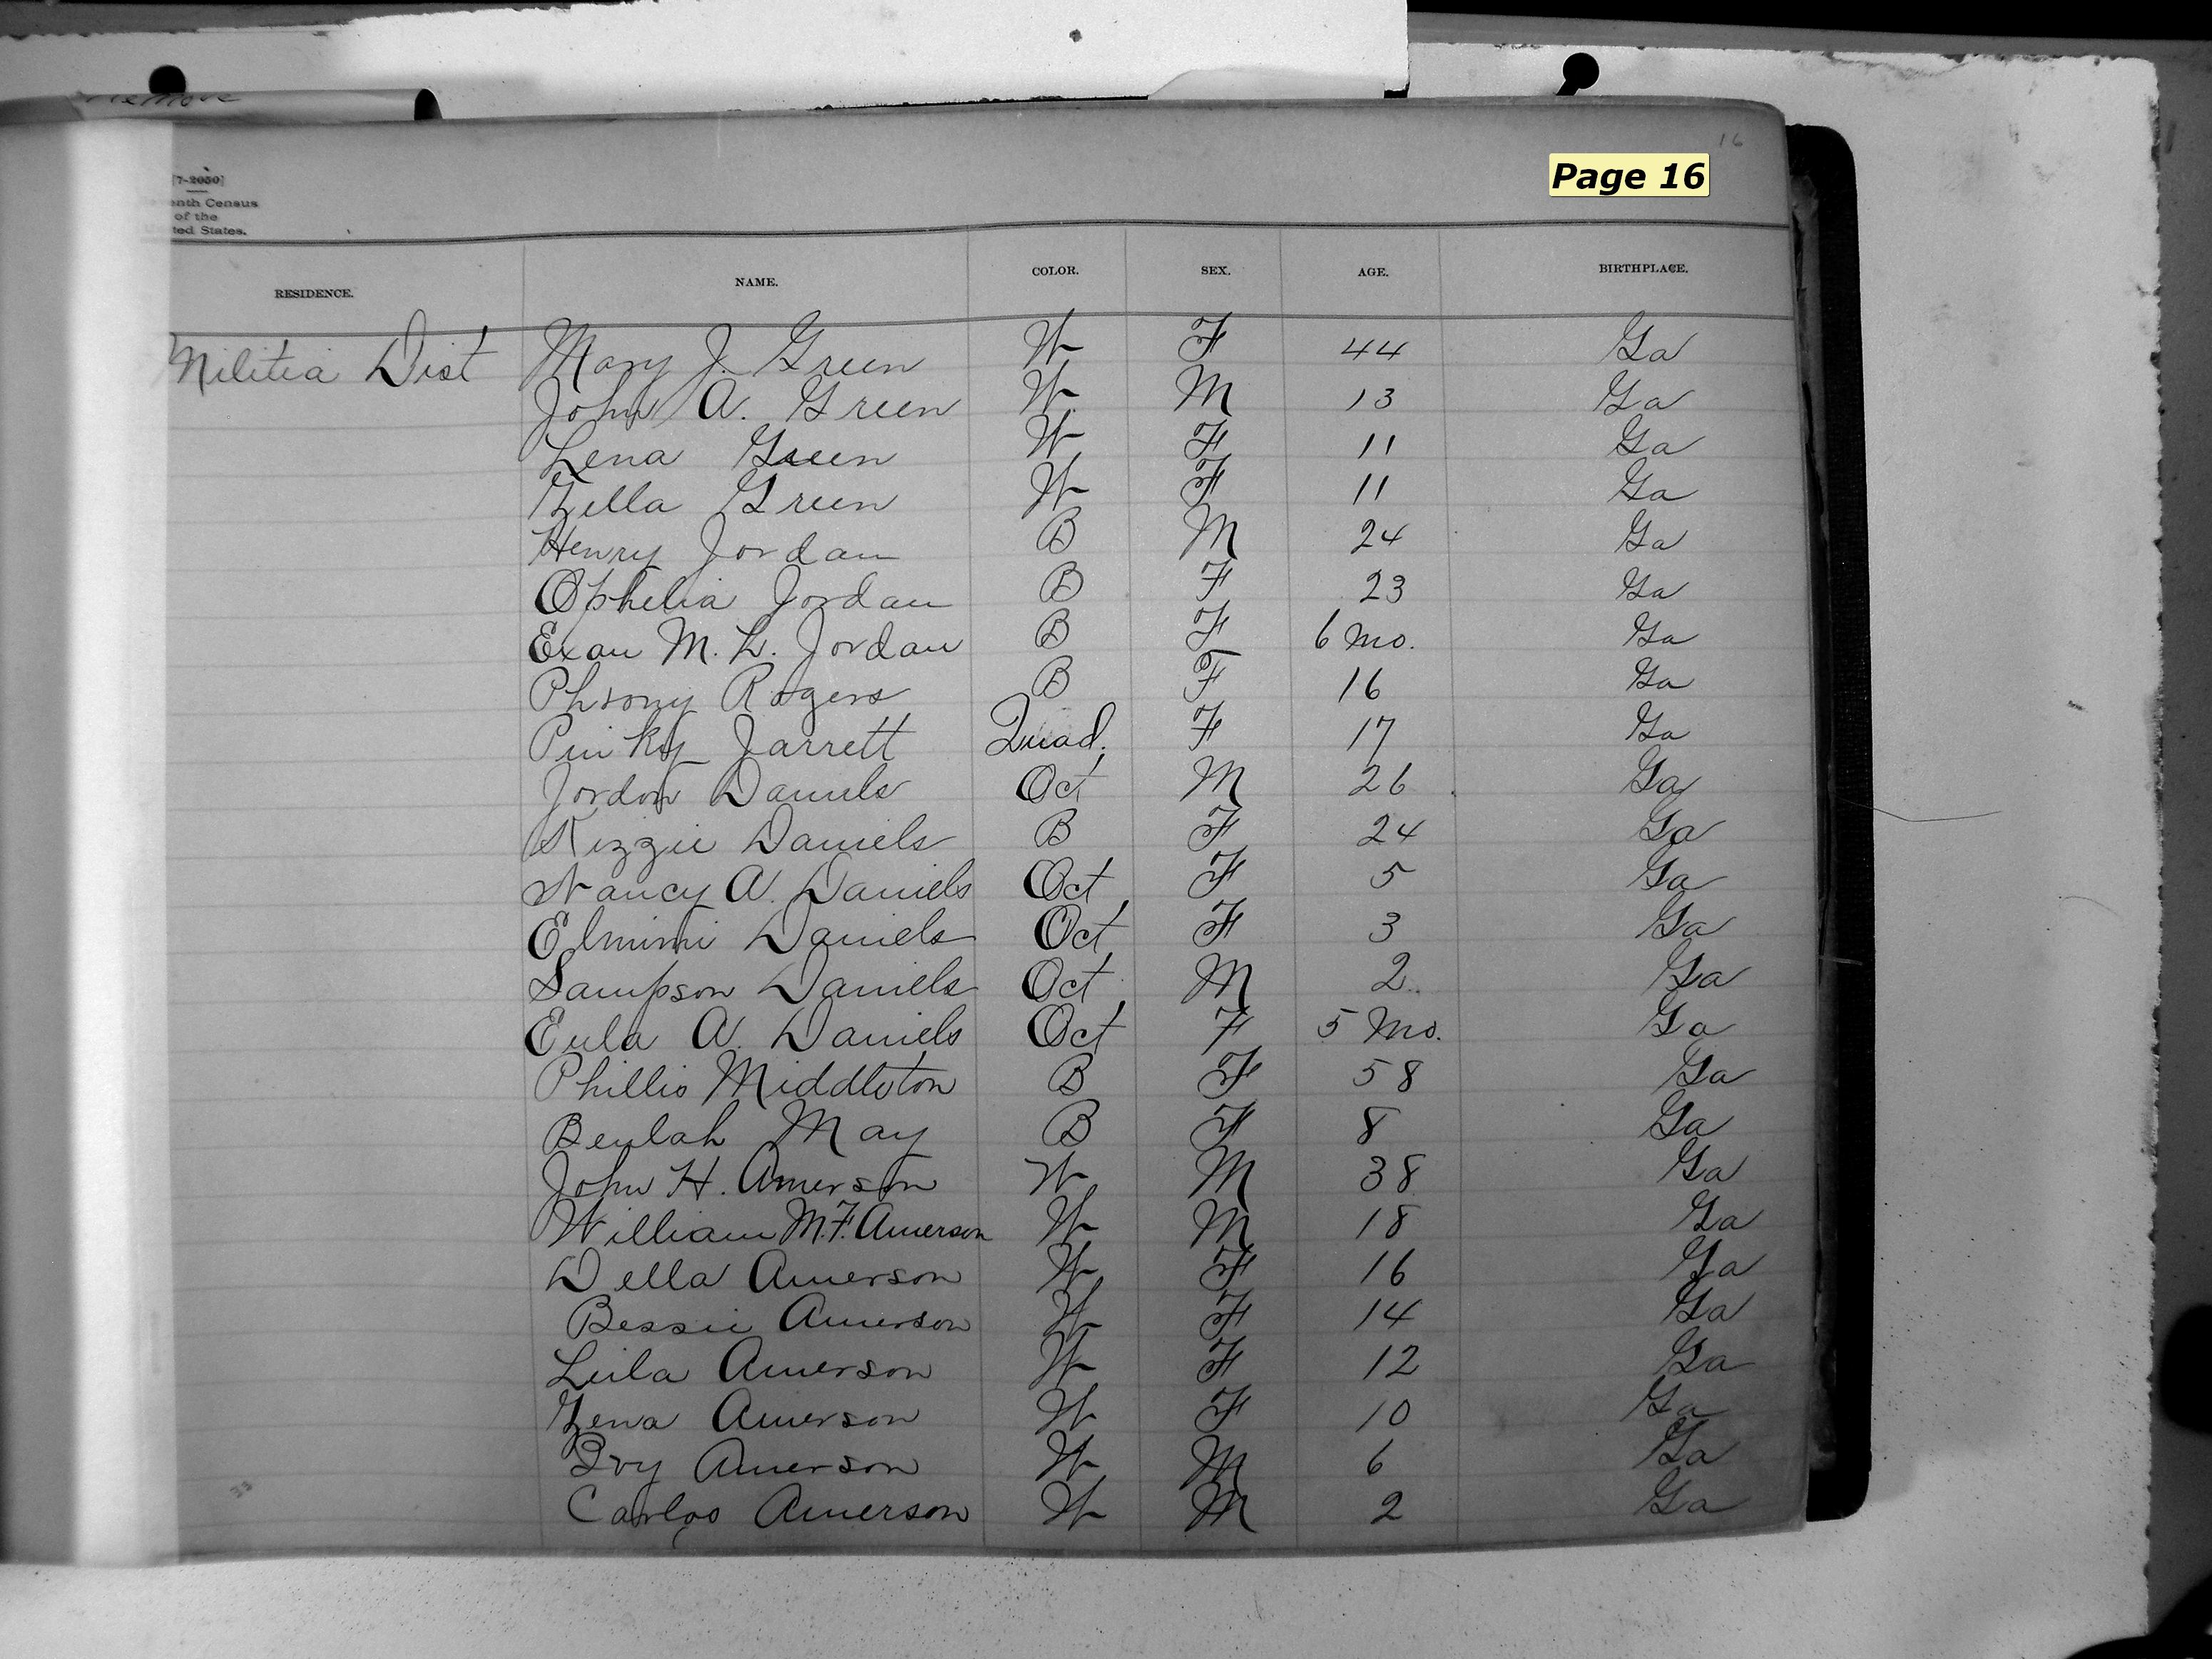 Remove
16
Page 16
[7-2050]
enth Census
of the
ted States.
RESIDENCE. NAME. COLOR. SEX. AGE. BIRTHPLACE.
Militia Dist Mary J. Green W F 44 Ga
John A. Green W M 13 Ga
Lena Green W F 11 Ga
Zella Green W F 11 Ga
Henry Jordan B M 24 Ga
Ophelia Jordan B F 23 Ga
Exan M. L. Jordan B F 6 mo. Ga
Rogers B F 16 Ga
Pinky Jarrett Quad. F 17 Ga
Jordon Daniels Oct M 26 Ga
Kizzie Daniels B F 24 Ga
Nancy A. Daniels Oct F 5 Ga
Elmimi Daniels Oct F 3 Ga
Sampson Daniels Oct M 2 Ga
Eula A. Daniels Oct F 5 Mo. Ga
Phillis Middleton B F 58 Ga
Beulah May B F 8 Ga
John H. Amerson W M 38 Ga
William M.F. Amerson W M 18 Ga
Della Amerson W F 16 Ga
Bessie Amerson W F 14 Ga
Leila Amerson W F 12 Ga
Zena Amerson W F 10 Ga
Ivy Amerson W M 6 Ga
Carlos Amerson W M 2 Ga
33